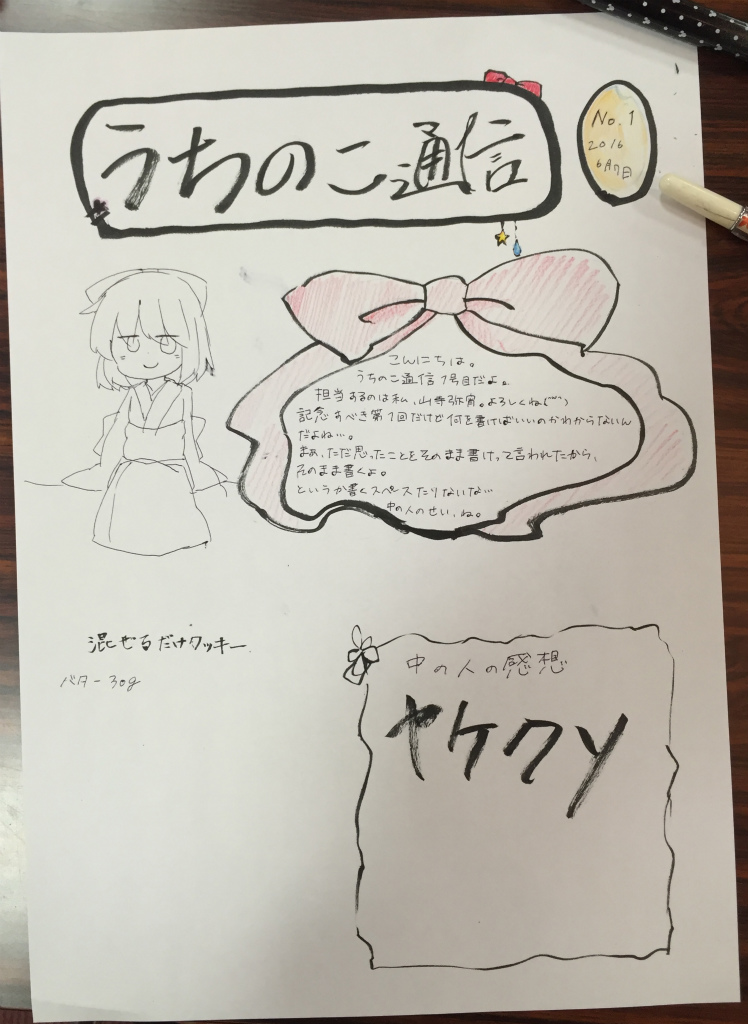 うちのこ通信
No.1
2016
6月7日
こんにちは。
うちのこ通信1号目だよ。
担当するのは私、山寺弥宵。よろしくね(^^)
記念すべき第1回だけど何を書けばいいのかわからないん
だよね…。
まぁ、ただ思ったことをそのまま書けって言われたから、
そのまま書くよ。
というか書くスペースたりないな…
中の人のせい、ね。
混ぜるだけクッキー
バター30g
中の人の感想
ヤケクソ